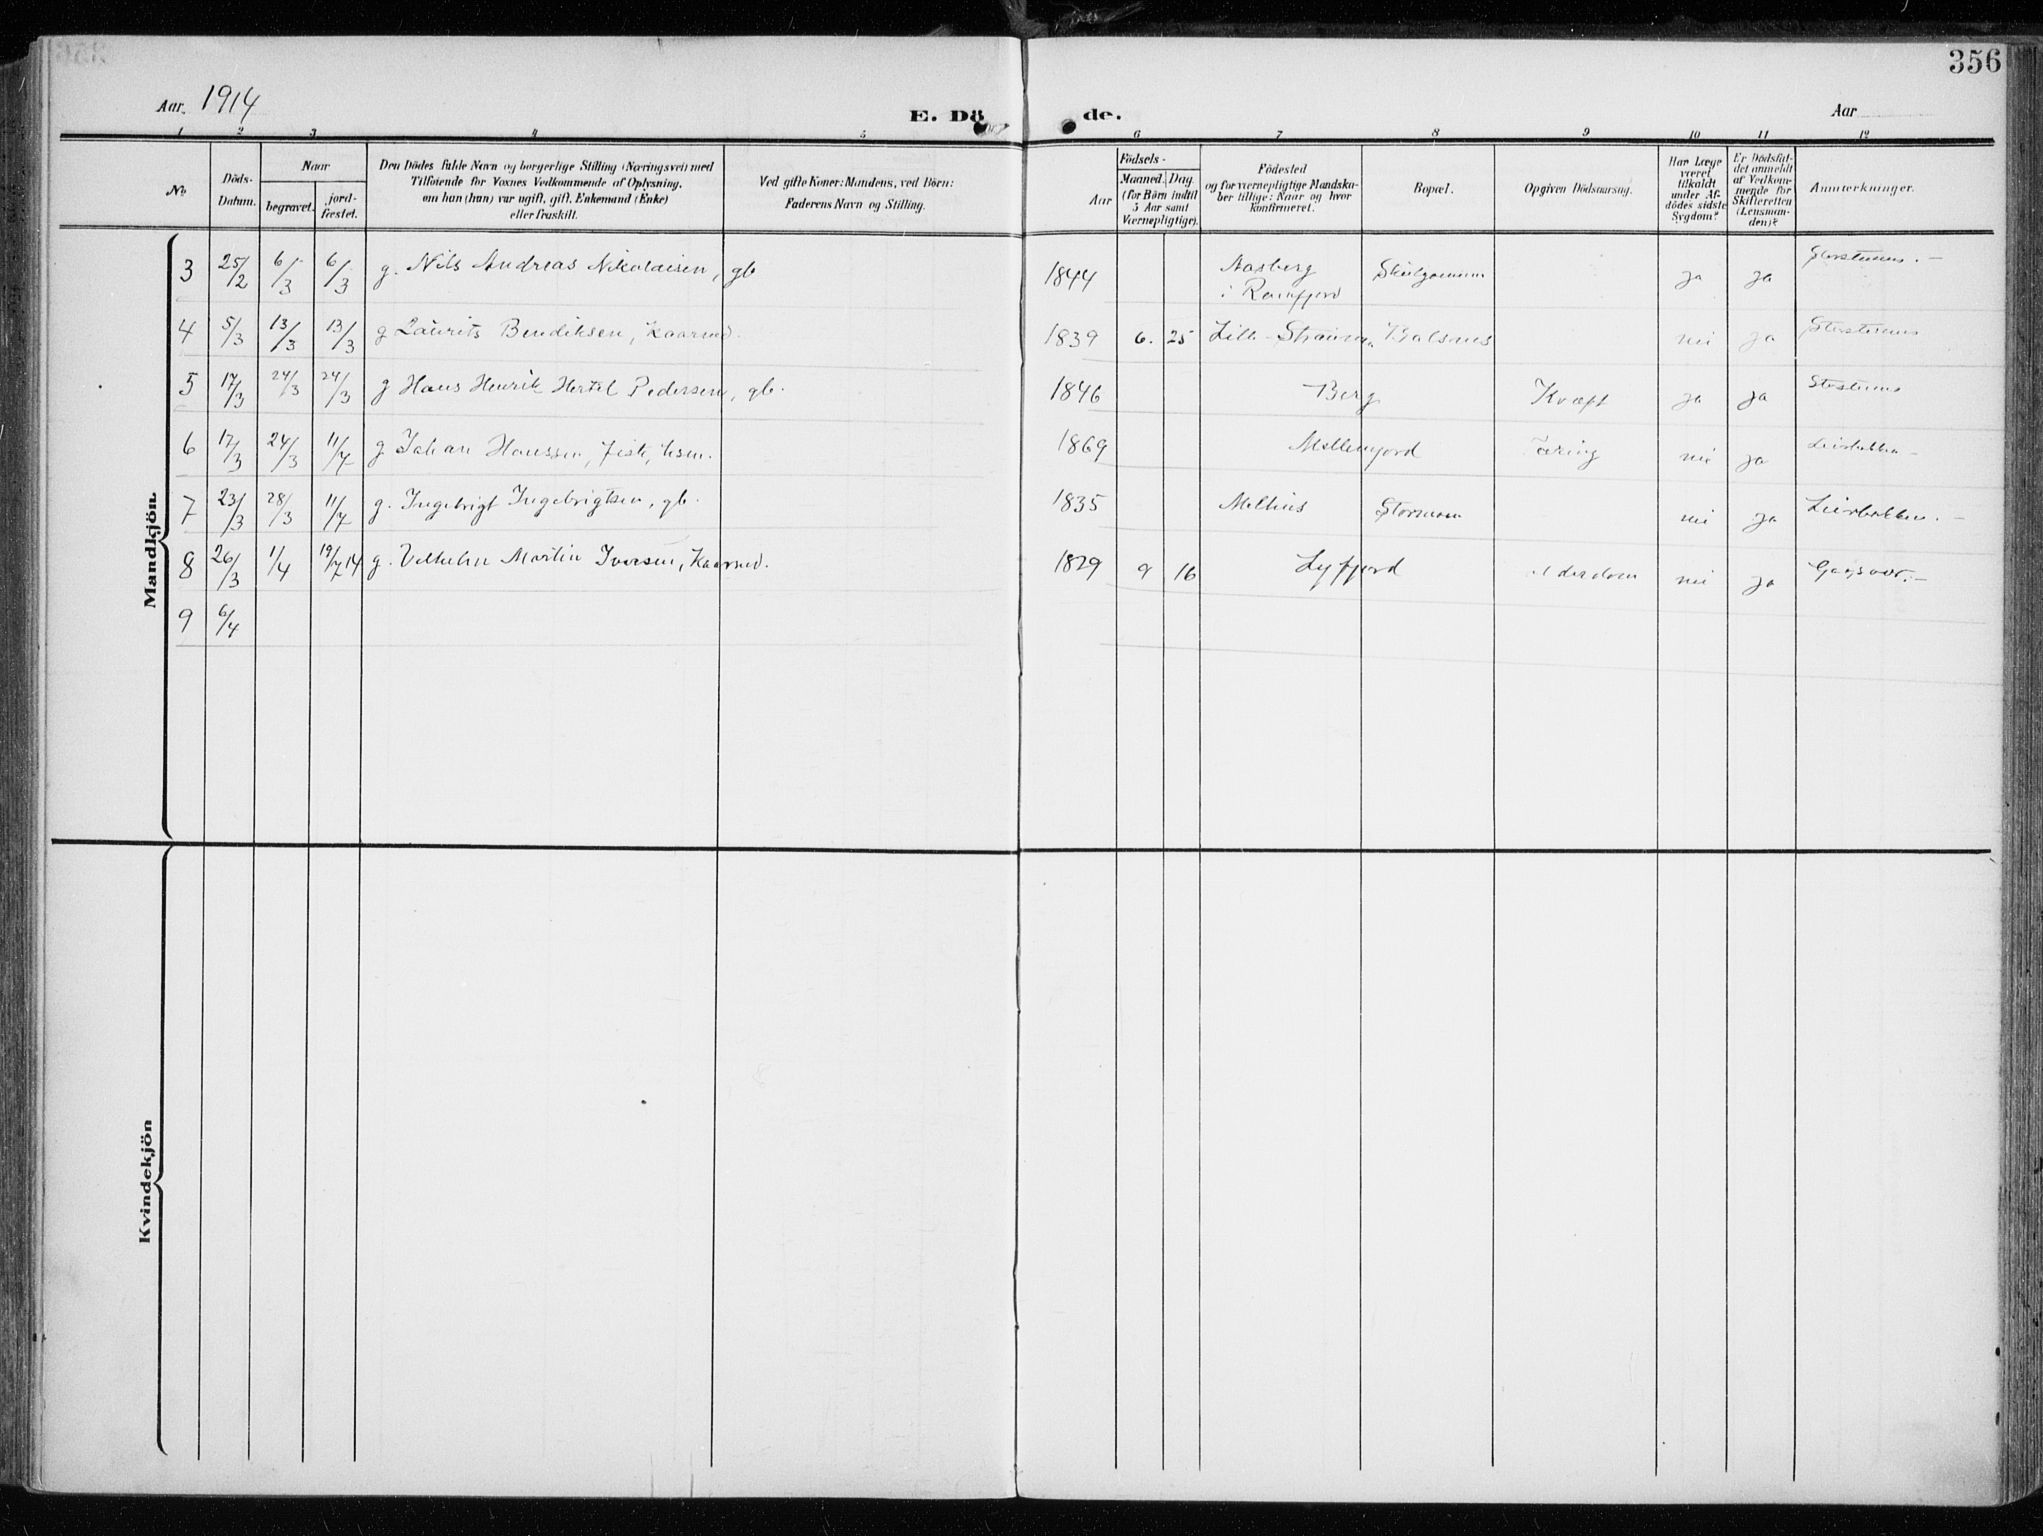 356
Aar. 1914
E. Dö de.
Aar
1 2 3 4 5 6 7 8 9 10 11 12
No
Döds-Datum.
Naar
begravet.
jord-fæstet.
Den Dödes fulde Navn og borgerlige Stilling (Næringsvei) med
Tilföiende for Voxnes Vedkommende af Oplysning,
om han (hun) var ugift, gift, Enkemand (Enke)
eller fraskilt.
Ved gifte Koner: Mandens, ved Börn:
Faderens Navn og Stilling.
Födsels-
Aar
Maaned. Dag.
(for Börn indtil
5 Aar samt
Værnepligtige).
Födested
og for værnepligtige Mandska-
ber tillige: Naar og hvor
konfirmeret.
Bopæl.
Opgiven Dödsaarsag.
Har Læge
været
tilkaldt
under Af-
dödes sidste
Sygdom?
Er Dödsfal-
det anmeldt
af Vedkom-
mende for
Skifteretten
(Lensman-
den)?
Anmærkninger.
Mandkjön.
3 25/2 6/3 6/3 g. Nils Andreas Nikolaisen, gb 1844 Aasberg i Ramfjord ja ja
4 5/3 13/3 13/3 g Laurits Bendiksen, Kaarmd. 1839 6. 25 Balsnes nei ja
5 17/3 24/3 24/3 g Hans Henrik Hertel Pedersen, gb. 1846 Berg Kræft ja ja
6 17/3 24/3 11/7 g Johan Hanssen, fisk, hsm. 1869 Mellemjord Tæring nei ja
7 23/3 28/3 11/7 g. Ingebrigt Ingebrigtsen, gb. 1835 Melhus Stormoen nei ja Leirbakken. –
8 26/3 1/4 19/7 14 g. Vilhelm Martin Iversen, Kaarmd. 1829 9 16 Lyfjord Alderdom nei ja
9 6/4
Kvindekjön